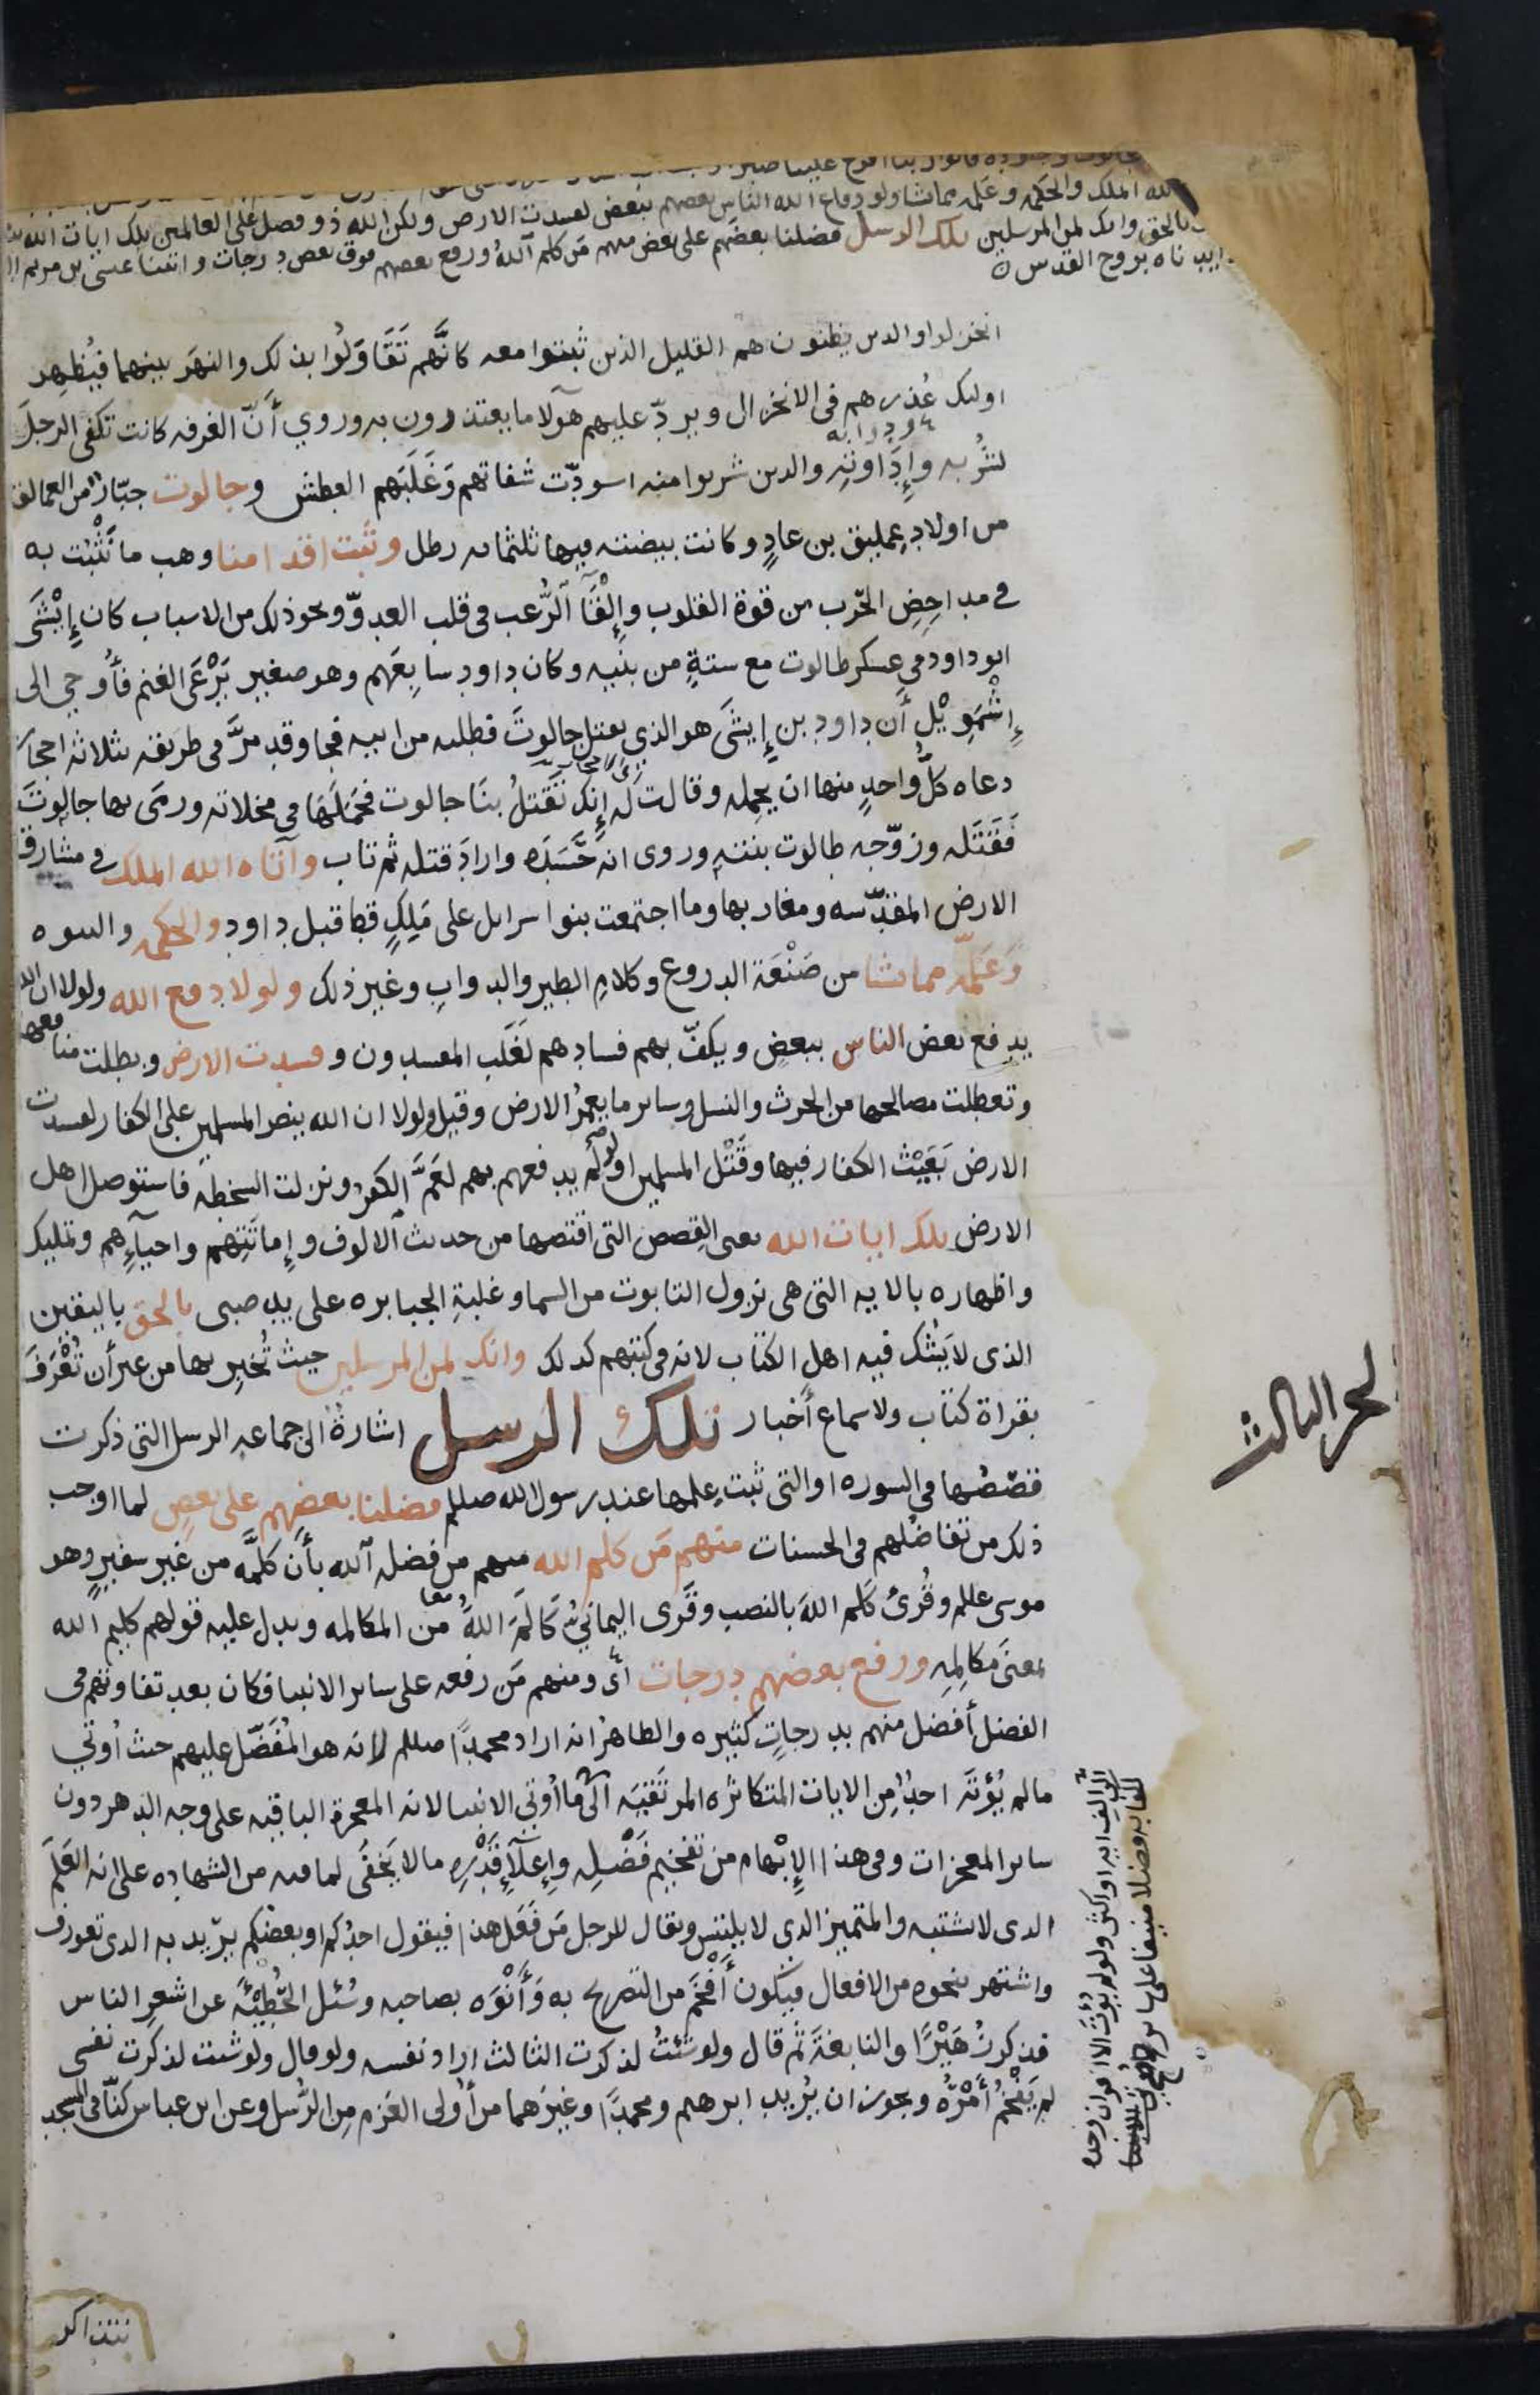 الله الملك والحكمه وعلمه مما يشا ولو دفاع الله الناس بعضهم ببعض لفسدت الارض ولكن الله ذو فضل على العالمين تلك ايات الله
بالحق وانك لمن المرسلين تلك الرسل فضلنا بعضهم على بعض منهم من كلم الله ورفع بعضهم فوق بعض درجات واتينا عيسى بن مريم
وايدناه بروح القدس
انخزلوا والذين يظنون هم القليل الذين ثبتوا معه كانَّهم تَقَاوَلُوا بذلك والنهر بينهما فيُظهِر
اولئك عُذرهم في الانخزال ويردّ عليهم هولا ما يعتذرون به وروي أنّ الغرفه كانت تكفى الرجل
لشُربه وإِدَاوته ودوابه والذين شربوا منه اسودّت شفاتهم وَغَلَبَهم العطش وجالوت جبّار من العمالقه
من اولاد عمليق بن عادٍ وكانت بيضته فيها ثلثمائه رطل وثبت اقدامنا وهب ما نَثْبُت به
في مداحِضِ الحرب من قوة القلوب وإِلْقَآ الرُّعب في قلب العدوّ ونحو ذلك من الاسباب كان إِيْشَى
ابو داود في عسكر طالوت مع ستةٍ من بنيه وكان داود سابِعَهم وهو صغير يَرْعَى الغنم فأُوحِي الى
إِشْمَوِيْل أن داود بن إِيشَى هو الذي يقتل جالوتَ فطلبه من ابيه فجا وقد مرَّ في طريقه بثلاثة احجار
دعاه كلُّ واحدٍ منها ان يحمله وقالت له إنك تَقتلُ بنا جالوت فحَمَلَهَا في مخلاته ورمَى بها جالوتَ
فَقَتَلَه وزوّجه طالوت بنته وروى انه حَسَدَه وارادَ قتله ثم تاب وآتاه الله الملك في مشارق
الارض المقدّسه ومغاربها وما اجتمعت بنوا سرائل على مَلِكٍ قط قبل داود والحكمه والنبوه
وَعَلَّمه مما يشا من صَنْعَة الدروع وكلام الطير والدواب وغير ذلك ولولا دفع الله ولولا ان الله
يدفع بعض الناس ببعض ويكفّ بهم فسادهم لغَلَب المفسدون وفسدت الارض وبطلت منافعها
وتعطلت مصالحها من الحرث والنسل وسائر ما يعمُرُ الارض وقيل ولولا ان الله ينصر المسلمين على الكفار لفسدت
الارض بَعَيْث الكفار فيها وقَتْل المسلمين او لو لم يدفعهم بهم لعَمَّ الكفر ونزلت السخطه فاستوصل اهل
الارض تلك ايات الله يعنى القصص التى اقتصها من حديث الالوف وإماتَتِهم واحيآءِهم وتمليك
واظهاره بالايه التى هي نزول التابوت من السما وغلبةِ الجبابره على يد صبى بالحق باليقين
الذى لا يَشُك فيه اهل الكتاب لانه في كتبهم كذلك وانك لمن المرسلين حيث تُخبِر بها من غير أن تُعْرَفَ
بقراة كتاب ولا سماع أخبار تلك الرسل اشارة الى جماعه الرسل التى ذكرت
قصصُها في السوره او التى ثبت علمها عند رسول الله صللم فضلنا بعضهم على بعض لما اوجب
ذلك من تفاضُلهم في الحسنات منهم مَن كلم الله منهم من فضله الله بأن كلَّمه من غير سفيرٍ وهو
موسى عللم وقُرئ كَلم اللهَ بالنصب وقَرَى اليمانيُّ كَالَمَ اللهَ من المكالمه ويدل عليه قولهم كليم الله
بمعنَى مكالِمِه ورفع بعضهم درجات أى ومنهم مَن رفعه على سائر الانبيا فكان بعد تفاوتهم في
الفضل أفضل منهم بدرجاتٍ كثيره والظاهر انه اراد محمدًا صللم لانه هو المُفَضَّل عليهم حيث أوتي
مالم يُؤتَه احدٌ من الايات المتكاثره المرتقيه الى ما أوتي الانبيا لانه المعجزة الباقيه على وجه الدهر دون
سائر المعجزات وفي هذا الإِبْهام من تفخيم فَضْلِه وإِعلآءِ قَدْرِه ما لا يَخفَى لما فيه من الشهاده على انه العَلَمَ
الذى لا يشتبه والمتميز الذى لا يلتبس ويقال للرجل مَن فَعَل هذا فيقول احدُكم او بعضكم يريد به الذى تعورف
واشتهر بنحوه من الافعال فيكون أَفْخَمَ من التصريح به وَأَنْوَه بصاحبه وسُئل الحُطَيْئَة عن اشعر الناس
فذكر زُهَيْرًا والنابغةَ ثم قال ولو شئتُ لذكرت الثالث اراد نفسه ولو قال ولو شئت لذكرت نفسى
لم يَفْخُم أَمْرُه ويجوز ان يُريد ابرهيم ومحمدًا وغيرَهما من أُولى العَزم مِن الرُّسل وعن ابن عباس كنّا في المسجد
الف ايه او اكثر ولو لم يُوتَ الا القران وحده
لكفا به فضلا منيفا على سائر
نتذاكر